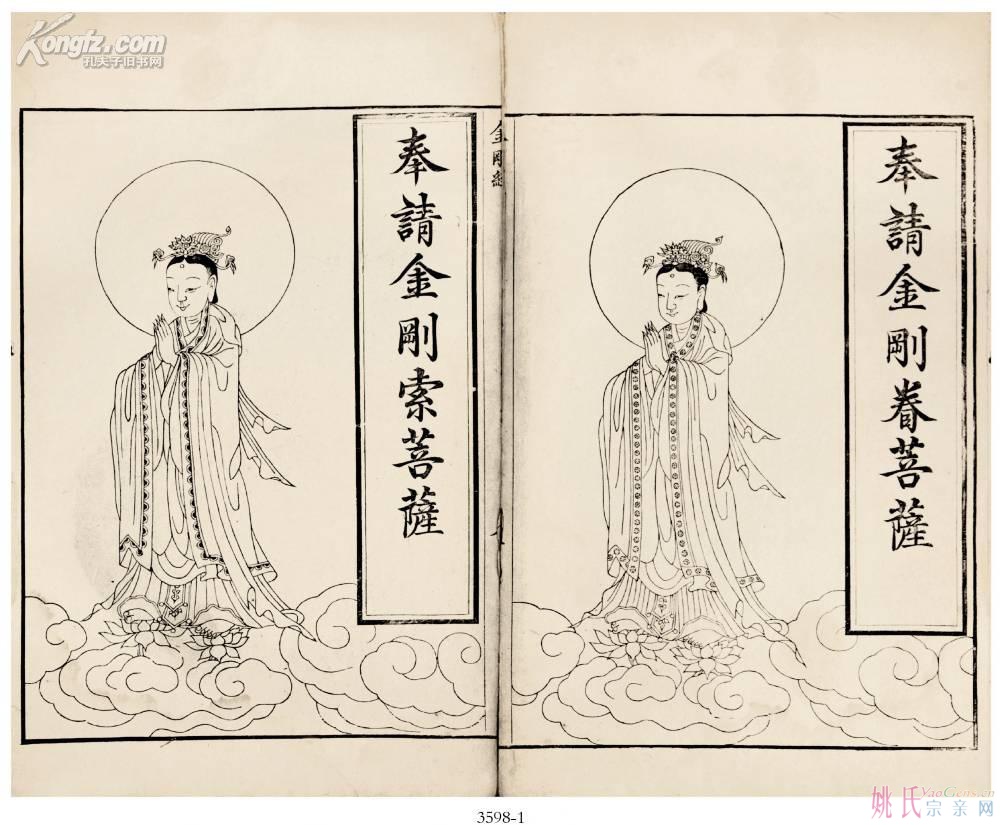 Kongfz.com
孔夫子旧书网
奉請金剛眷菩薩
金剛經
奉請金剛索菩薩
姚氏 YaoGens.cn
宗亲网
3598-1